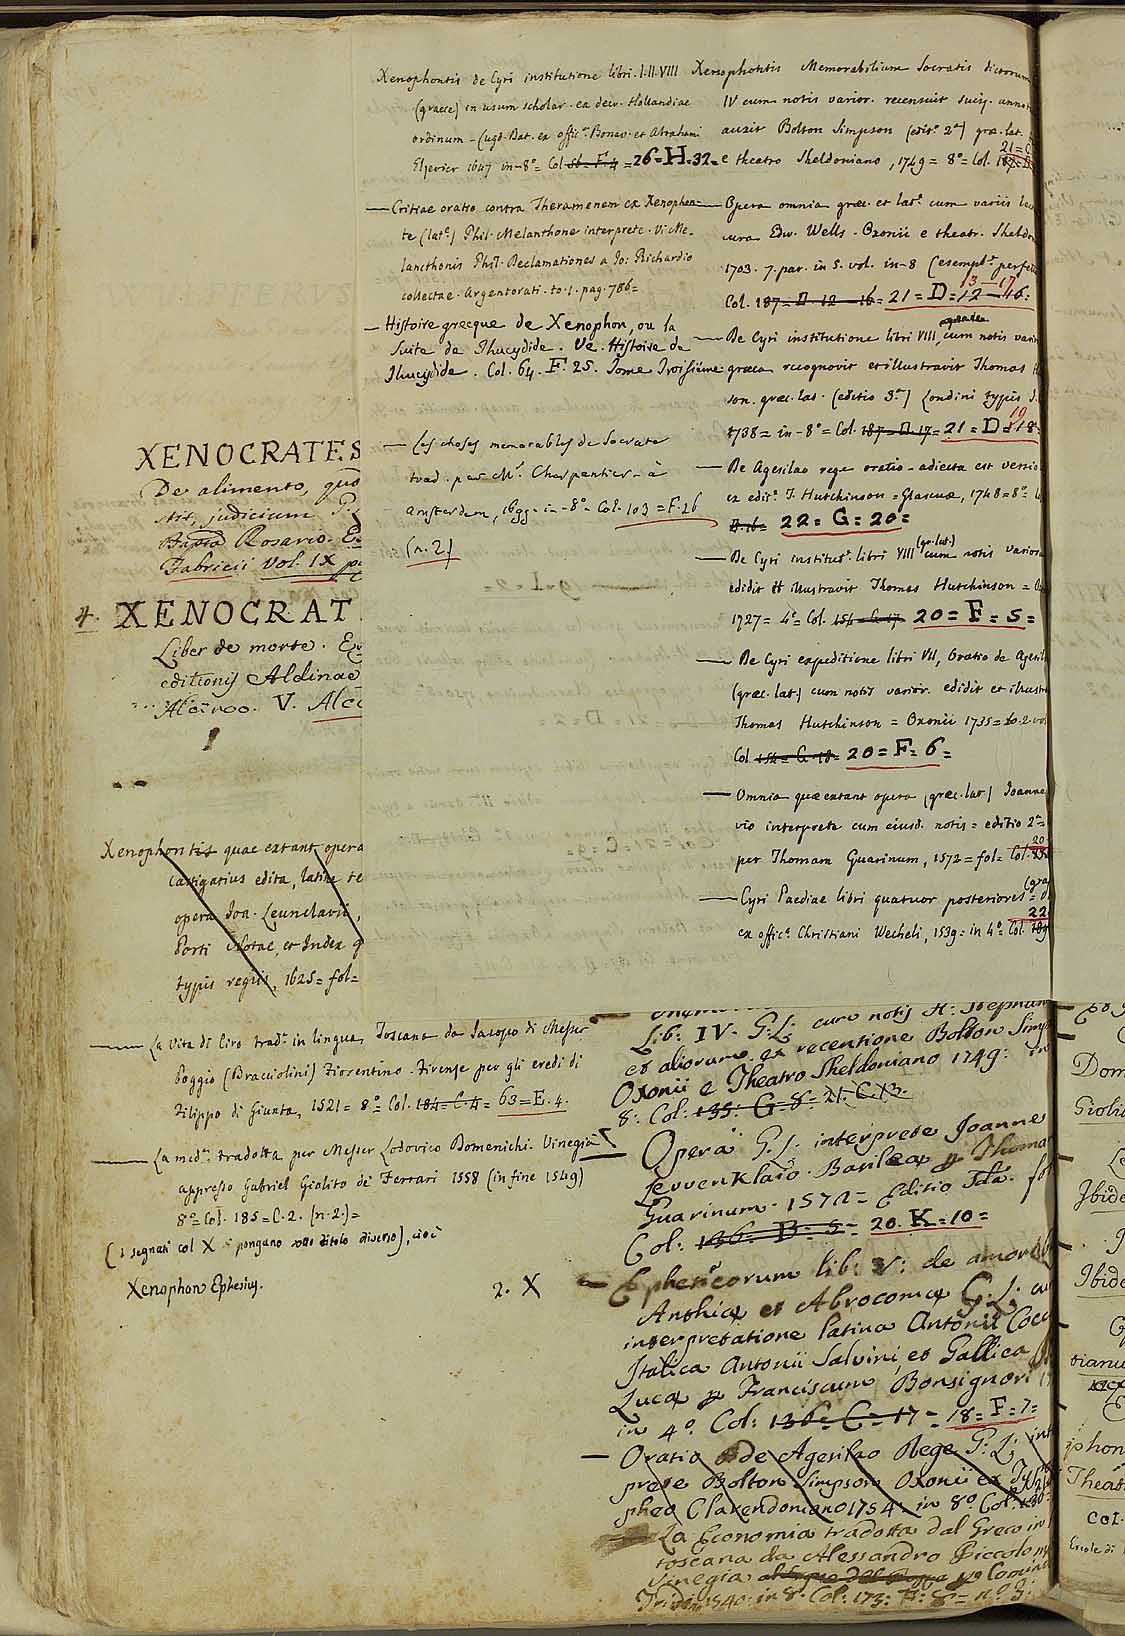 Xenophontis de Cyri institutione libri. I. II. VIII
(graece) in usum scholar. ex decr. Hollandiae
ordinum - Lugd. Bat. ex offic.ª Bonav. et Abrahami
Elzevier 1647 in-8º = Col. 56 = F. 4 = 26 = H = 32 =
— Critiae oratio contra Theramenem ex Xenophon-
te (lat.e) Phil. Melanthone interprete. V. Me-
lancthonis Phil. Declamationes a Jo: Richardio
collectae. Argentorati. to. 1. pag. 786 =
— Histoire grecque de Xenophon, ou la
Suite de Thucydide. Ve. Histoire de
Thucydide. Col. 64. F. 25. Tome Troisième
— Les choses memorables de Socrate
trad. par Mr. Charpentier - à
Amsterdam, 1699 = in-8º Col. 103 = F. 26
(n. 2)
Xenophontis Memorabilium Socratis dictorum
IV cum notis varior. recensuit suisq. annot
auxit Bolton Simpson (edit.º 2ª) græ. lat.
e theatro Sheldoniano, 1749 = 8º = Col. 187 = D
21 = C
— Opera omnia græc. et lat.e cum variis lec
cura Edw. Wells - Oxonii e theatr. Sheldo
1703. 7. par. in 5. vol. in-8 (esempl.e perfe
13 — 17
Col. 187 = D. 12 — 16 = 21 = D = 12 — 16 =
— De Cyri institutione libri VIII cum notis vario
græca recognovit et illustravit Thomas H
son. græc. lat. (editio 3ª) Londini typis J.
19
1738 = in-8º = Col. 187 = D. 17 = 21 = D = 18 =
— De Agesilao rege oratio - adiecta est versio
ex edit.e T. Hutchinson = Glascuæ, 1748 = 8º =
D. 16 = 22 = G = 20 =
(gr. lat.)
— De Cyri institut.e libri VIII cum notis varior
edidit et illustravit Thomas Hutchinson = Ox
1727 = 4º = Col. 154 = C. 17. 20 = F = 5 =
— De Cyri expeditione libri VII, Oratio de Agesil
(græc. lat.) cum notis varior. edidit et illustra
Thomas Hutchinson = Oxonii 1735 = to. 2. vol
Col 154 = C. 18 = 20 = F = 6 =
— Omnia quæ extant opera (græc. lat) Joanne
vio interprete cum eiusd. notis = editio 2ª =
20
per Thomam Guarinum, 1572 = fol = Col.
(græ
— Cyri Paediae libri quatuor posteriores =
22
ex offic.ª Christiani Wecheli, 1539 = in 4º = Col. 189
XENOCRATES
De alimento, quo
judicium
Rosario.
Fabricii Vol. IX
4. XENOCRAT
Liber de morte.
editionis Aldinae
Alcinoo. V. Alci
Xenophontis quae extant opera
castigatius edita, latine
opera Joa. Leunclavii,
Porti Notae, et Index
typis regiis, 1625 = fol =
— La Vita di Ciro trad.ª in lingua Toscana da Jacopo di Messer
Poggio (Bracciolini) Fiorentino - Firenze per gli eredi di
Filippo di Giunta, 1521 = 8º = Col. 184 = C. 4 = 63 = E. 4.
— La med.ª tradotta per Messer Lodovico Domenichi. Vinegia
appresso Gabriel Giolito de' Ferrari 1558 (in fine 1549)
8º = Col. 185 = C. 2. (n. 2.) =
(I segnati col X si pongano sotto titolo diverso), cioè
Xenophon Ephesius.
2. X
Lib: IV. G: L: cum notis H: Stephan
et aliorum ex recentione Bolton Simp
Oxonii e Theatro Sheldoniano 1749: in
8: Col: 135: G = 8 = 21. C. 13.
Opera G: L: interprete Joanne
Levvenklaio. Basileæ p Thoma
Guarinum. 1572 = Editio IIda. fol
Col: 136: B = 5 = 20. K = 10 =
— Ephesicorum lib: V: de amorib
Anthiæ et Abrocomæ G: L: cu
interpretatione latina Antonii Cocc
Italica Antonii Salvini, et Gallica
Lucæ p Franciscum Bonsignori
in 4º. Col: 136 = C = 17 = 18 = F = 7 =
— Oratio de Agesilao Rege G: L: int
prete Bolton Simpson Oxonii ex Typ
pheo Clarendoniano 1754: in 8º Col:
La Economia tradotta dal Greco in
toscana da Alessandro Piccolom
Vinegia
Tridin 1540: in 8º Col: 173: F: 8 = nº 3:
Dom
Giolit
Ibide
Ibide
tianu
phon
Theat
Col.